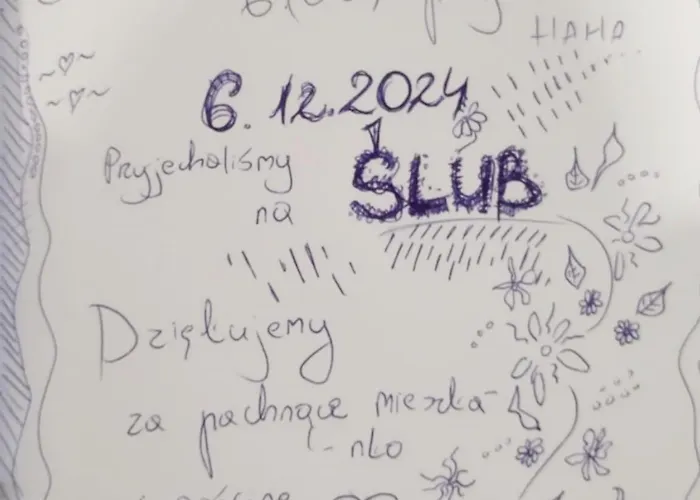 HAHA
6.12.2024
Przyjechaliśmy
na
ŚLUB
Dziękujemy
za pachnące mieszka-
-nko